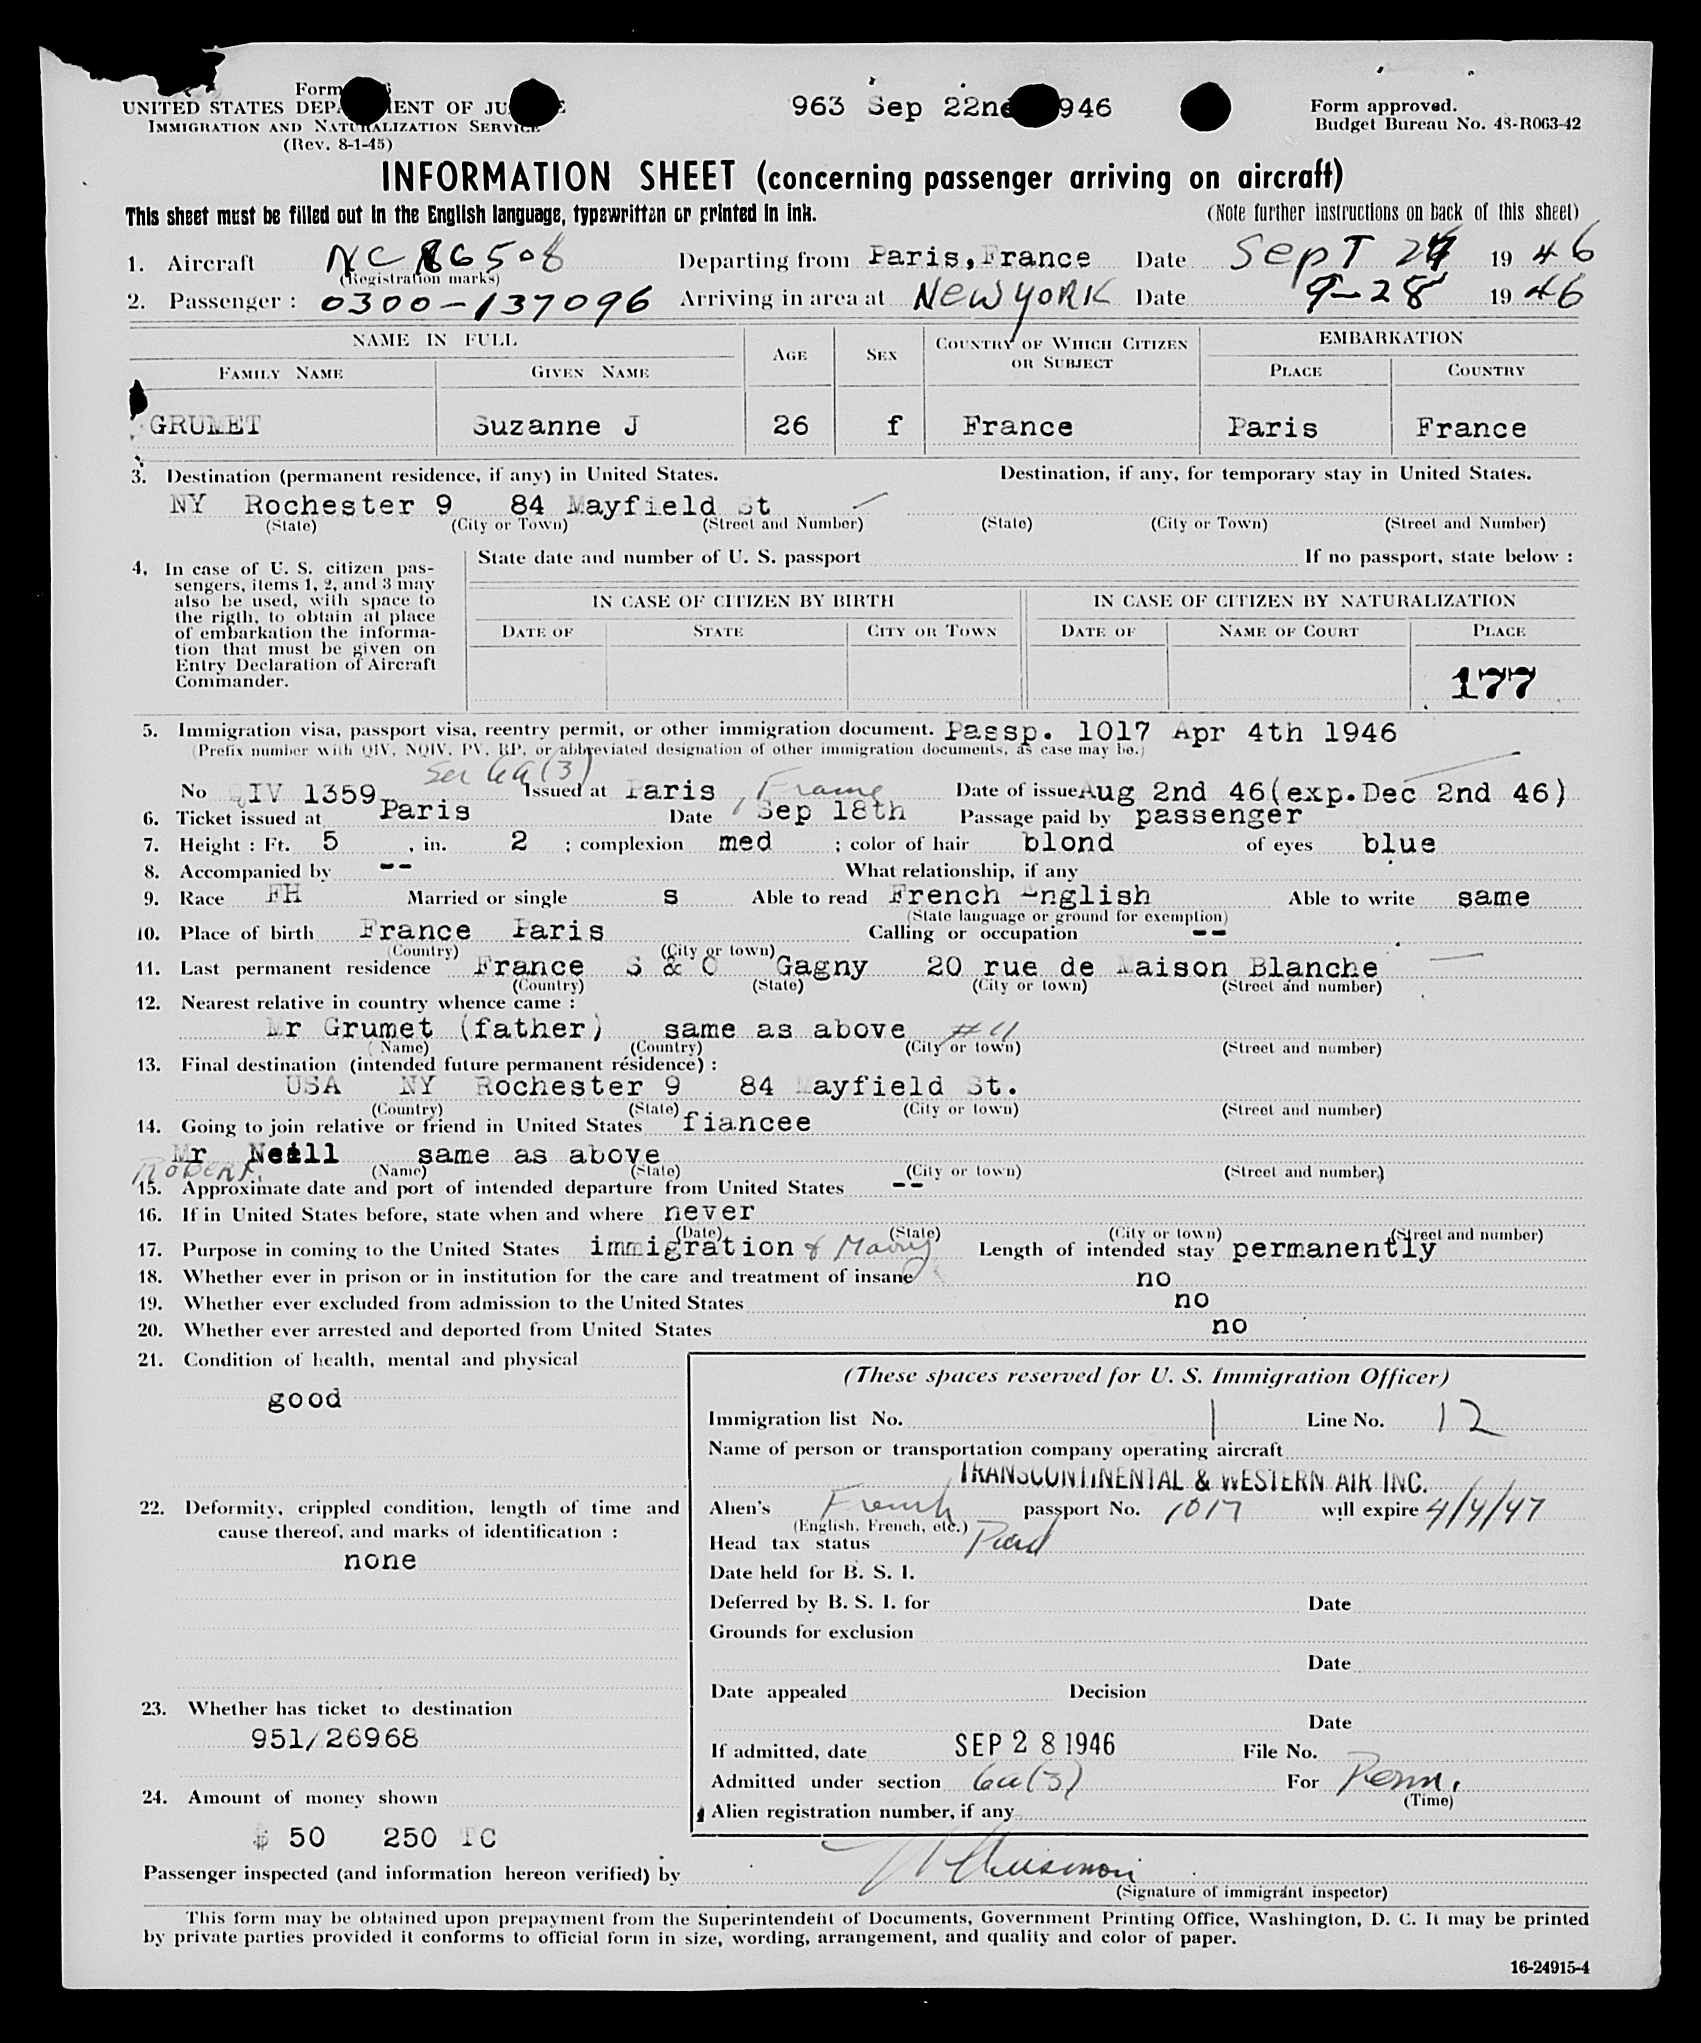 Form
UNITED STATES DEPA ENT OF JU E
IMMIGRATION AND NATURALIZATION SERVICE
(Rev. 8-1-45)
963 Sep 22nd 1946
Form approved.
Budget Bureau No. 43-R063-42
INFORMATION SHEET (concerning passenger arriving on aircraft)
This sheet must be filled out in the English language, typewritten or printed in ink. (Note further instructions on back of this sheet)
1. Aircraft NC 86508 Departing from Paris, France Date Sept 27 19 46
(Registration marks)
2. Passenger : 0300-137096 Arriving in area at New York Date 9-28 19 46
NAME IN FULL AGE SEX COUNTRY OF WHICH CITIZEN OR SUBJECT EMBARKATION
FAMILY NAME GIVEN NAME PLACE COUNTRY
GRUMET Suzanne J 26 f France Paris France
3. Destination (permanent residence, if any) in United States. Destination, if any, for temporary stay in United States.
NY Rochester 9 84 Mayfield St
(State) (City or Town) (Street and Number) (State) (City or Town) (Street and Number)
4. In case of U. S. citizen pas-
sengers, items 1, 2, and 3 may
also be used, with space to
the rigth, to obtain at place
of embarkation the informa-
tion that must be given on
Entry Declaration of Aircraft
Commander.
State date and number of U. S. passport If no passport, state below :
IN CASE OF CITIZEN BY BIRTH IN CASE OF CITIZEN BY NATURALIZATION
DATE OF STATE CITY OR TOWN DATE OF NAME OF COURT PLACE
177
5. Immigration visa, passport visa, reentry permit, or other immigration document. Passp. 1017 Apr 4th 1946
(Prefix number with QIV, NQIV, PV, RP, or abbreviated designation of other immigration documents, as case may be.)
Sec 6a(3)
No QIV 1359 Issued at Paris, France Date of issue Aug 2nd 46(exp.Dec 2nd 46)
6. Ticket issued at Paris Date Sep 18th Passage paid by passenger
7. Height : Ft. 5 , in. 2 ; complexion med ; color of hair blond of eyes blue
8. Accompanied by -- What relationship, if any
9. Race FH Married or single s Able to read French English Able to write same
(State language or ground for exemption)
10. Place of birth France Paris Calling or occupation --
(Country) (City or town)
11. Last permanent residence France S & O Gagny 20 rue de Maison Blanche
(Country) (State) (City or town) (Street and number)
12. Nearest relative in country whence came :
Mr Grumet (father) same as above #11
(Name) (Country) (City or town) (Street and number)
13. Final destination (intended future permanent résidence) :
USA NY Rochester 9 84 Mayfield St.
(Country) (State) (City or town) (Street and number)
14. Going to join relative or friend in United States fiancee
Mr Neill same as above
Robert. (Name) (State) (City or town) (Street and number)
15. Approximate date and port of intended departure from United States --
16. If in United States before, state when and where never
(Date) (State) (City or town) (Street and number)
17. Purpose in coming to the United States immigration & Marry Length of intended stay permanently
18. Whether ever in prison or in institution for the care and treatment of insane no
19. Whether ever excluded from admission to the United States no
20. Whether ever arrested and deported from United States no
21. Condition of health, mental and physical
good
22. Deformity, crippled condition, length of time and
cause thereof, and marks of identification :
none
23. Whether has ticket to destination
951/26968
24. Amount of money shown
$ 50 250 TC
(These spaces reserved for U. S. Immigration Officer)
Immigration list No. 1 Line No. 12
Name of person or transportation company operating aircraft
TRANSCONTINENTAL & WESTERN AIR INC.
Alien's French passport No. 1017 will expire 4/4/47
(English, French, etc.)
Head tax status Paid
Date held for B. S. I.
Deferred by B. S. I. for Date
Grounds for exclusion
Date
Date appealed Decision
Date
If admitted, date SEP 28 1946 File No.
Admitted under section 6a(3) For Perm.
(Time)
Alien registration number, if any
Passenger inspected (and information hereon verified) by
(Signature of immigrant inspector)
This form may be obtained upon prepayment from the Superintendent of Documents, Government Printing Office, Washington, D. C. It may be printed
by private parties provided it conforms to official form in size, wording, arrangement, and quality and color of paper.
16-24915-4